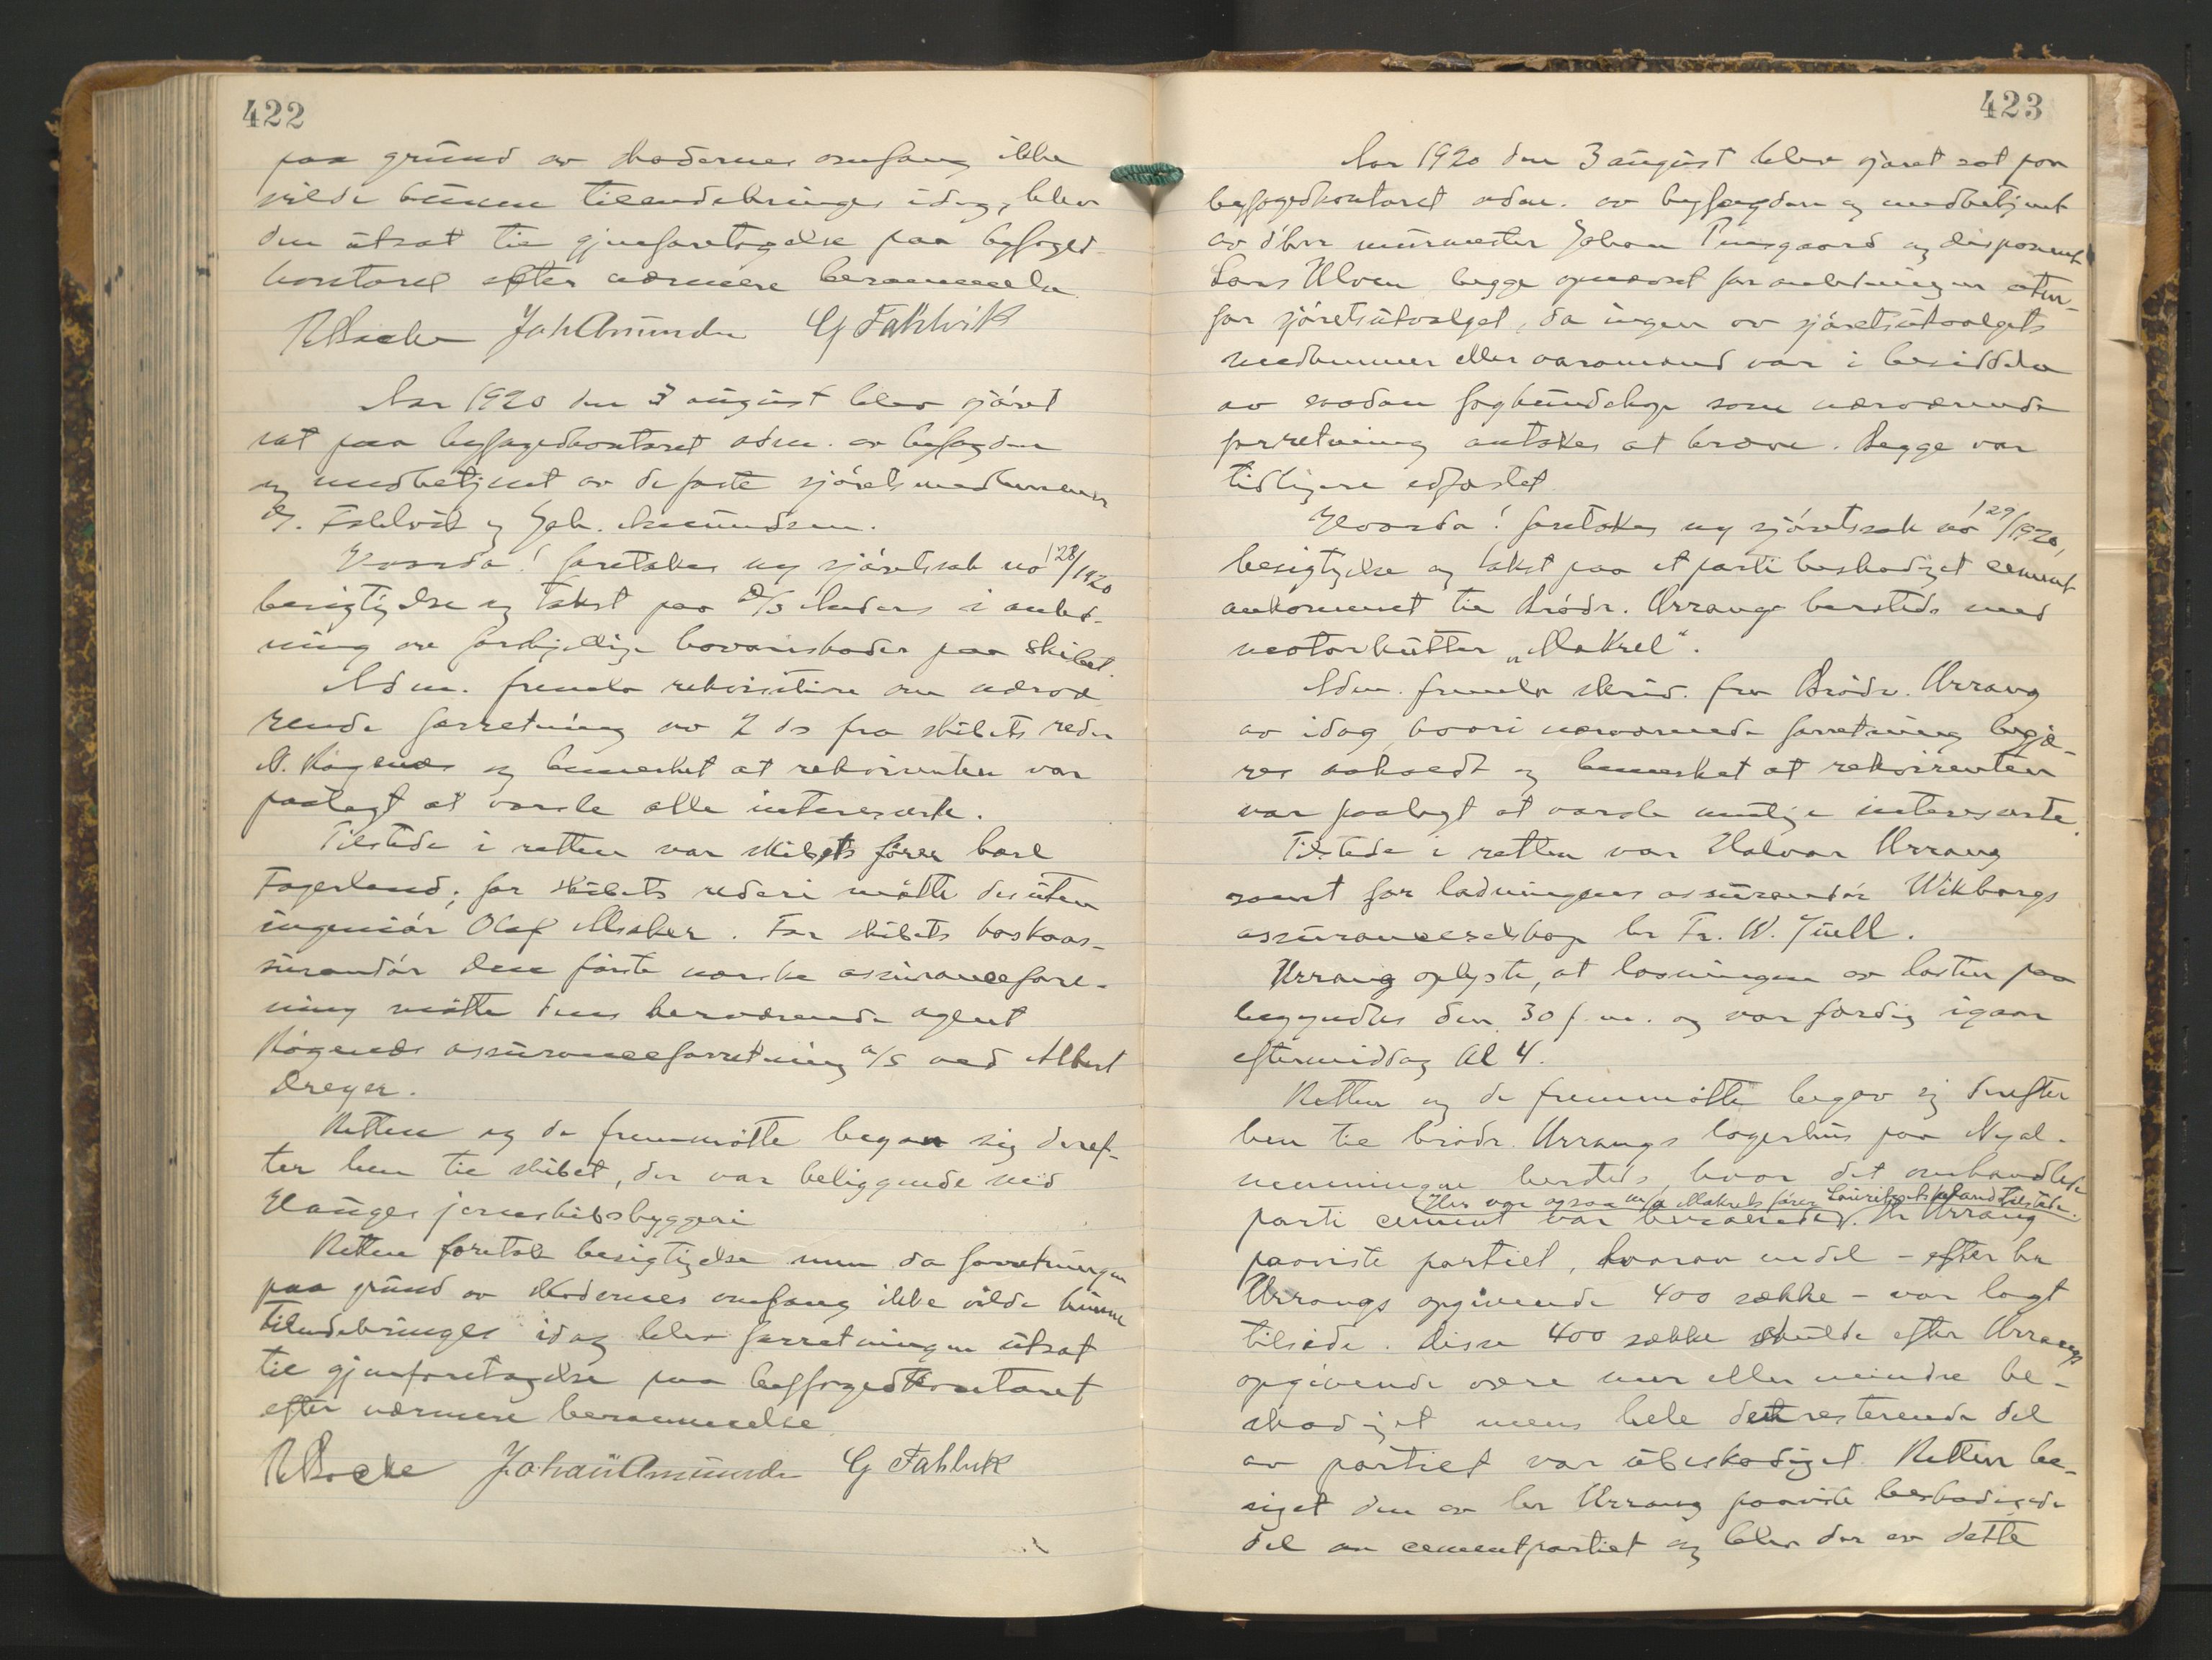 422
paa grund av skadernes omfang ikke
vilde kunne tilendebringes idag, blev
den utsat til gjenforetagelse paa byfoged-
kontoret efter nærmere berammelse
Joh Amundsen G Fahlvik
Aar 1920 den 3 august blev sjøret
sat paa byfogedkontoret adm. av byfogden
og medbetjent av de faste sjøretsmedlemmer
G. Fahlvik og Joh. Amundsen.
Hvorda! foretokes ny sjøretssak no 128/1920
besigtigelse og takst paa D/S i anled-
ning av forskjellige havariskader paa skibet.
Adm. fremla rekvisition om nærvæ-
rende forretning av 2 ds fra skibets reder
N. Røgenæs og bemerket at rekvirenten var
paalagt at varsle alle interesserte.
Tilstede i retten var skibets fører Carl
Fagerland; for skibets rederi møtte desuten
ingeniør Olaf Meaker. For skibets kaskoas-
surandør Den første norske assuranceforе-
ning møtte dens herværende agent
Røgenæs assuranceforretning a/s ved Albert
Dreyer.
Retten og de fremmøtte begav sig deref-
ter hen til skibet, der var beliggende ved
Hauges jernskibsbyggeri
Retten foretok besigtigelse men da forretningen
paa grund av skadernes omfang ikke vilde kunne
tilendebringes idag blev forretningen utsat
til gjenforetagelse paa byfogedkontoret
efter nærmere berammelse
Johan Amundsen G Fahlvik
423
Aar 1920 den 3 august blev sjøret sat paa
byfogedkontoret adm. av byfogden og medbetjent
av d'hrr murmester Johan og disponent
Lars Ulven begge opnævnt for anledningen uten-
for sjøretsutvalget, da ingen av sjøretsutvalgets
medlemmer eller varamænd var i besiddelse
av saadan fagkundskap som nærværende
forretning antokes at kræve. Begge var
tidligere edfæstet
Hvorda! foretokes ny sjøretssak no 129/1920,
besigtigelse og takst paa et parti beskadiget cement
ankommet til Brødr. Urrangs hersteds med
motorkutter "Makrel".
Adm. fremla skriv. fra Brødr. Urrang
av idag, hvori nærværende forretning begjæ-
res avholdt og bemerket at rekvirenten
var paalagt at varsle mulige interesserte.
Tilstede i retten var Halvor Urrang
samt for ladningens assurandør Wikborgs
assuranceselskap hr Fr. W. Juell.
Urrang oplyste, at losningen av lasten paa
begyndtes den 30 f.m. og var færdig igaar
eftermiddag kl 4.
Retten og de fremmøtte begav sig derefter
hen til brødr. Urrangs lagerhus paa Nyal-
menningen hersteds, hvor det omhandlede
Her var ogsaa m/k Makrels fører tilstede.
parti cement var henlagret. Hr Urrang
paaviste partiet, hvorav endel - efter hr
Urrangs opgivende 400 sække - var lagt
tilside. Disse 400 sække skulde efter Urrangs
opgivende være mer eller mindre be-
skadiget mens hele den resterende del
av partiet var ubeskadiget. Retten be-
siget den av hr Urrang paaviste beskadigede
del av cementpartiet og blev der av dette